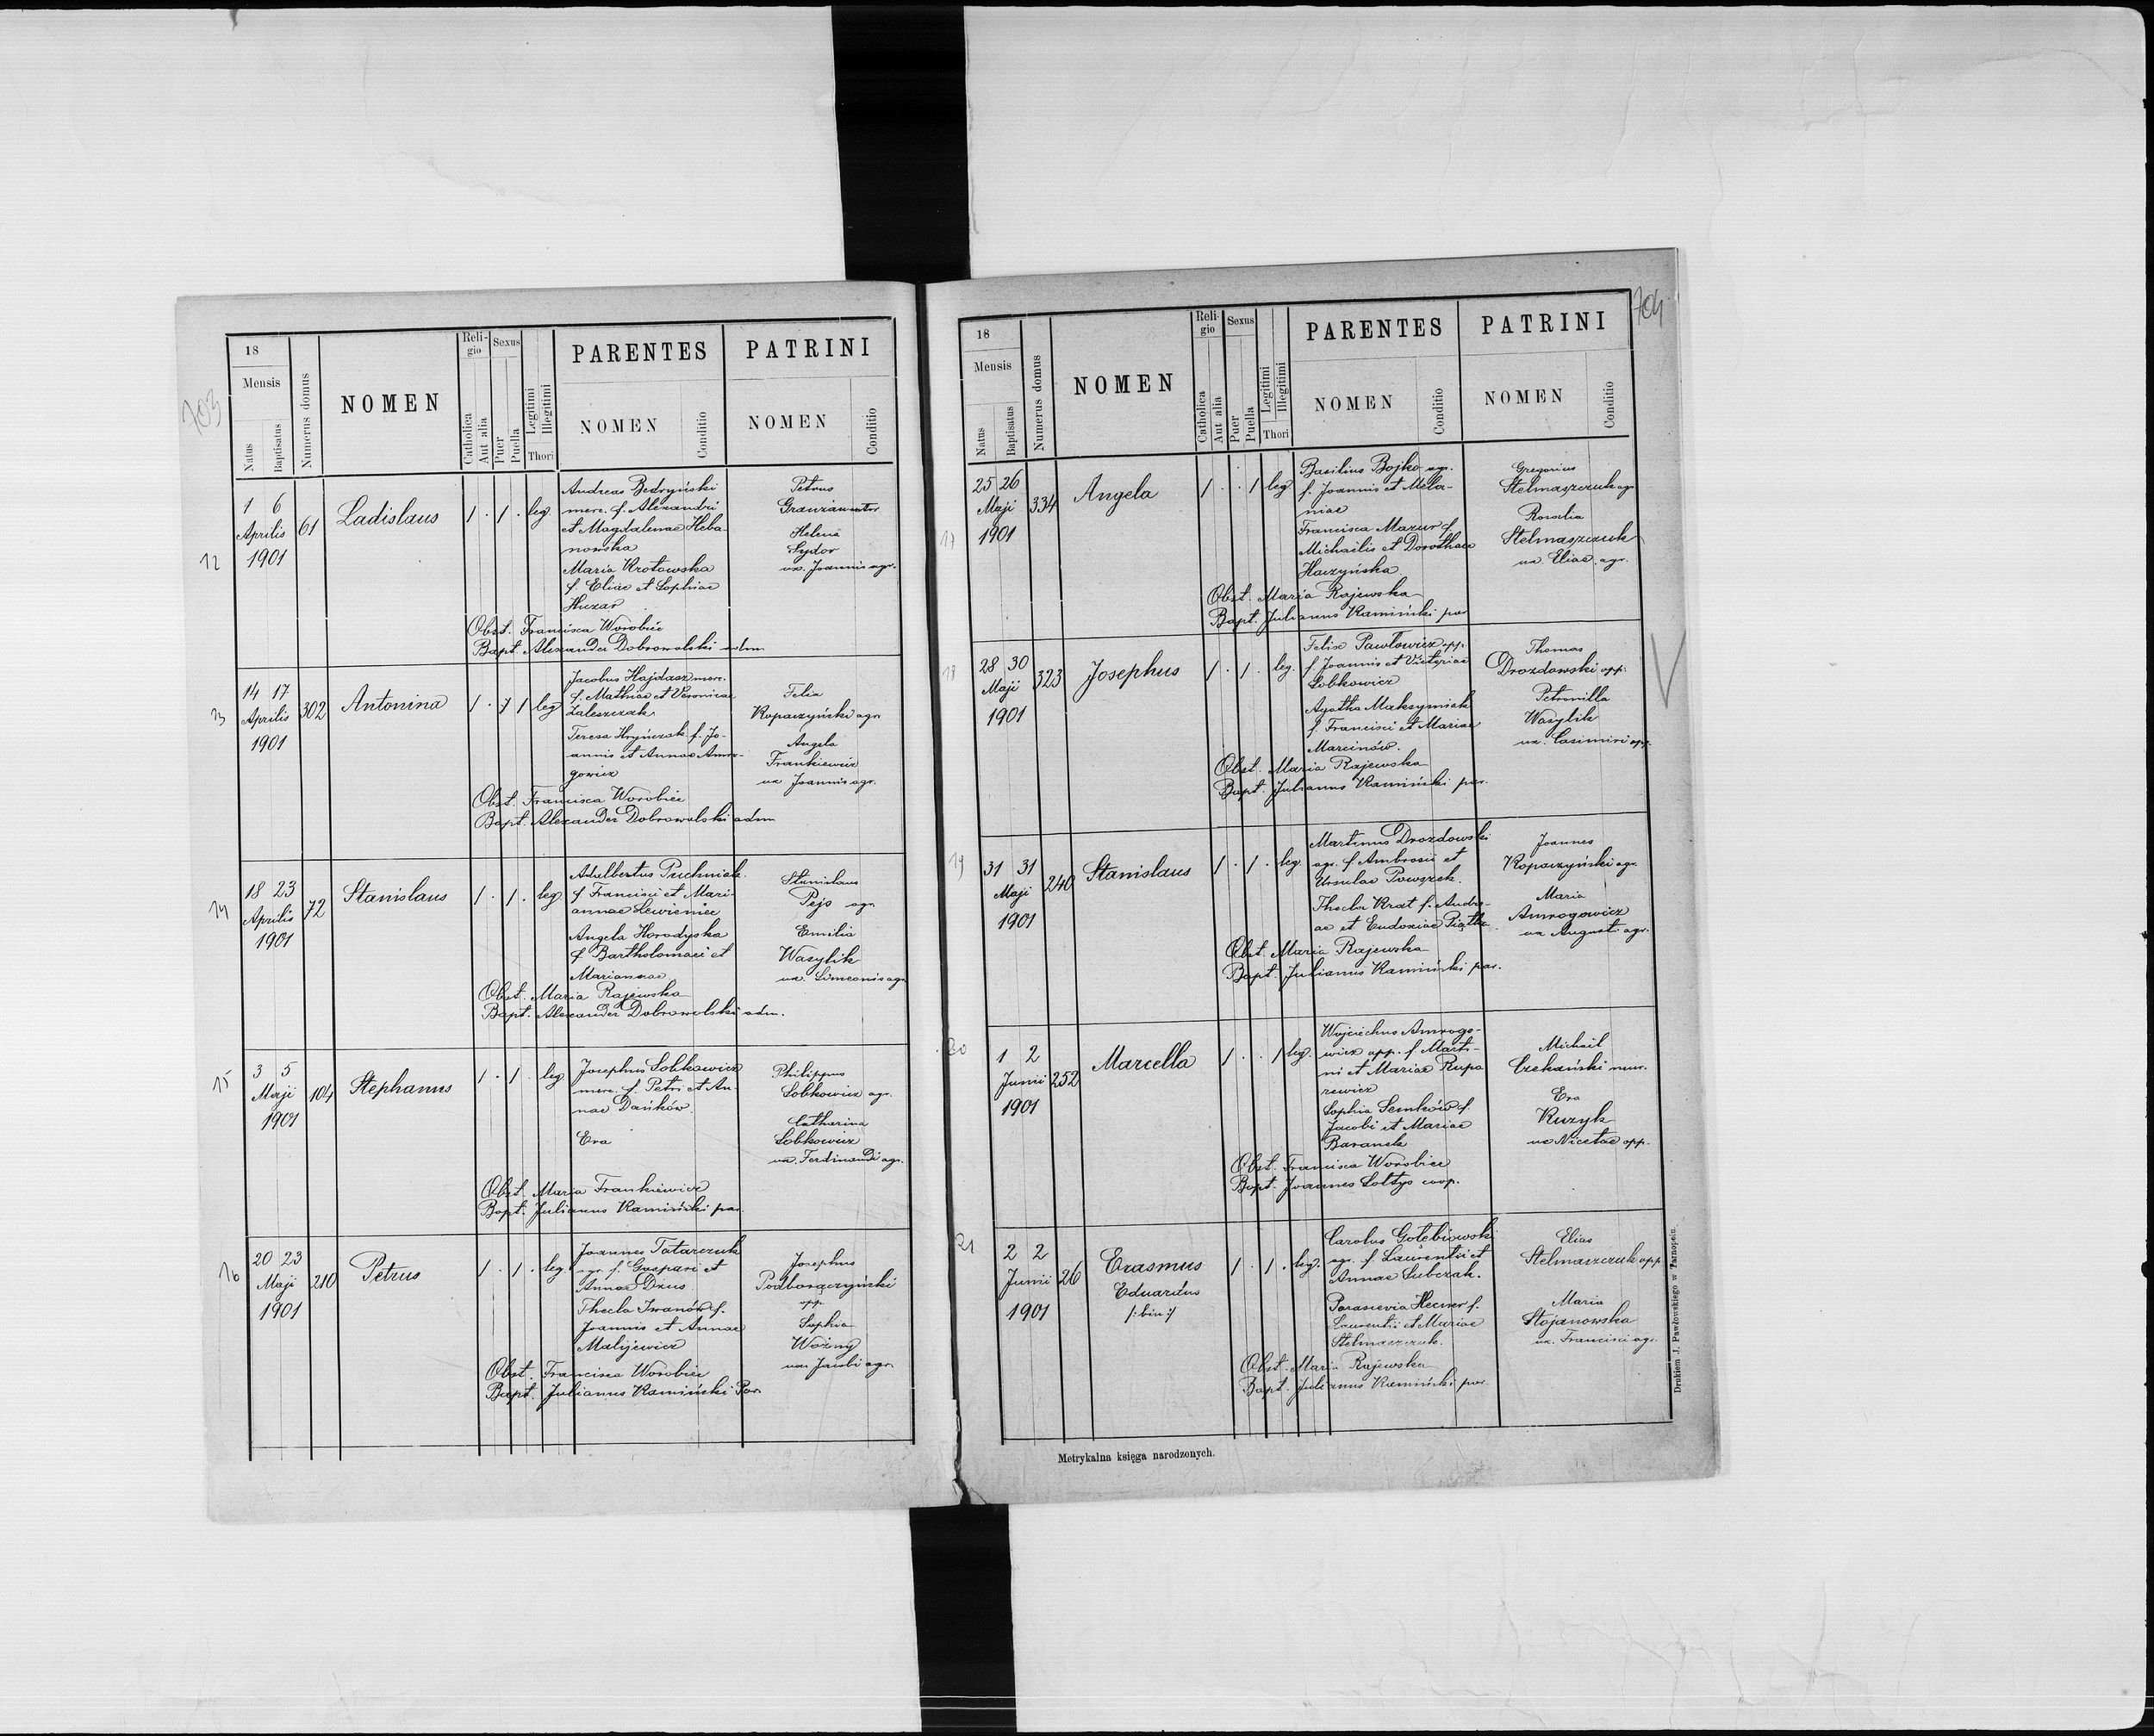 703
18
Mensis
Natus
Baptisatus
Numerus domus
NOMEN
Reli-
gio
Catholica
Aut alia
Sexus
Puer
Puella
Legitimi
Illegitimi
Thori
PARENTES
NOMEN
Conditio
PATRINI
NOMEN
Conditio
12
1 6
Aprilis
1901
61
Ladislaus
1 . 1 . leg
Andreas Bedryński
merc. f. Alexandri
et Magdalenae Heba-
nowska
Maria Krotowska
f. Eliae et Sophiae
Huzar
Petrus
Helena
Sydor
ux. Joannis agr.
Obst. Francisca Worobiec
Bapt. Alexander Dobrowolski adm
13
14 17
Aprilis
1901
302
Antonina
1 . 1 leg
Jacobus Hajdasz merc.
f. Mathiae et Veronicae
Zaleszczak
Teresa Hryńczak f. Jo-
annis et Annae Amro-
gowicz
Felix
Kopaczyński agr.
Angela
Frankiewicz
ux. Joannis agr.
Obst. Francisca Worobiec
Bapt. Alexander Dobrowolski adm
14
18 23
Aprilis
1901
72
Stanislaus
1 . 1 . leg
Adalbertus Puchniak
f. Francisci et Mari-
annae Lewieniec
Angela Horodyska
f. Bartholomaei et
Mariannae
Stanislaus
Pejo agr.
Emilia
Wasylik
ux. Simeonis agr
Obst. Maria Rajewska
Bapt. Alexander Dobrowolski adm.
15
3 5
Maji
1901
104
Stephanus
1 . 1 . leg
Josephus Sobkowicz
merc. f. Petri et An-
nae Dańków.
Eva
Philippus
Sobkowicz agr.
Catharina
Sobkowicz
ux. Ferdinandi agr.
Obst. Maria Frankiewicz
Bapt. Julianus Kamiński par.
16
20 23
Maji
1901
210
Petrus
1 . 1 . leg
Joannes Tatarczuk
agr. f. Gaspari et
Annae Dzius
Thecla Iwanów f.
Joannis et Annae
Malijewicz
Josephus
Podhorączyński
opp.
Sophia
Woźny
ux. Jacobi agr.
Obst. Francisca Worobiec
Bapt. Julianus Kamiński Par.
704
18
Mensis
Natus
Baptisatus
Numerus domus
NOMEN
Reli-
gio
Catholica
Aut alia
Sexus
Puer
Puella
Legitimi
Illegitimi
Thori
PARENTES
NOMEN
Conditio
PATRINI
NOMEN
Conditio
17
25 26
Maji
1901
334
Angela
1 . . 1 leg
Basilius Bojko agr.
f. Joannis et Mela-
niae
Francisca Mazur f.
Michaelis et Dorotheae
Haczyńska
Gregorius
Stelmaszczuk agr
Rosalia
Stelmaszczuk
ux. Eliae agr.
Obst. Maria Rajewska
Bapt. Julianus Kamiński par
18
28 30
Maji
1901
323
Josephus
1 . 1 . leg.
Felix Pawłowicz opp.
f. Joannis et
Sobkowicz
Agatha Maksymiak
f. Francisci et Mariae
Marcinów.
Thomas
Drozdowski opp.
Petronilla
Wasylik
ux. Casimiri opp.
Obst. Maria Rajewska
Bapt. Julianus Kamiński par.
19
31 31
Maji
1901
240
Stanislaus
1 . 1 . leg.
Martinus Drozdowski
agr. f. Ambrosii et
Ursulae Powszek.
Thecla Krat f. Andre-
ae et Eudoxiae Piątka.
Joannes
Kopaczyński agr.
Maria
Amrogowicz
ux Augusti agr.
Obst. Maria Rajewska
Bapt. Julianus Kamiński par.
20
1 2
Junii
1901
252
Marcella
1 . . 1 leg.
Wojciechus Amrogo-
wicz opp. f. Marti-
ni et Mariae Rupa
rewicz
Sophia Semków f.
Jacobi et Mariae
Baranek
Michael
Czekański mur.
Eva
Kuzyk
ux Nicetae opp.
Obst. Francisca Worobiec
Bapt. Joannes Sołtys coop.
21
2 2
Junii
1901
26
Erasmus
Eduardus
/: bin :/
1 . 1 . leg.
Carolus Gołebiowski
agr. f. Laurentii et
Annae Subczak.
Parascevia Hecner f.
Laurentii et Mariae
Stelmaszczuk.
Elias
Stelmaszczuk opp
Maria
Stojanowska
ux. Francisci agr.
Obst. Maria Rajewska
Bapt. Julianus Kamiński par.
Metrykalna księga narodzonych.
Drukiem J. Pawłowskiego w Tarnopolu.